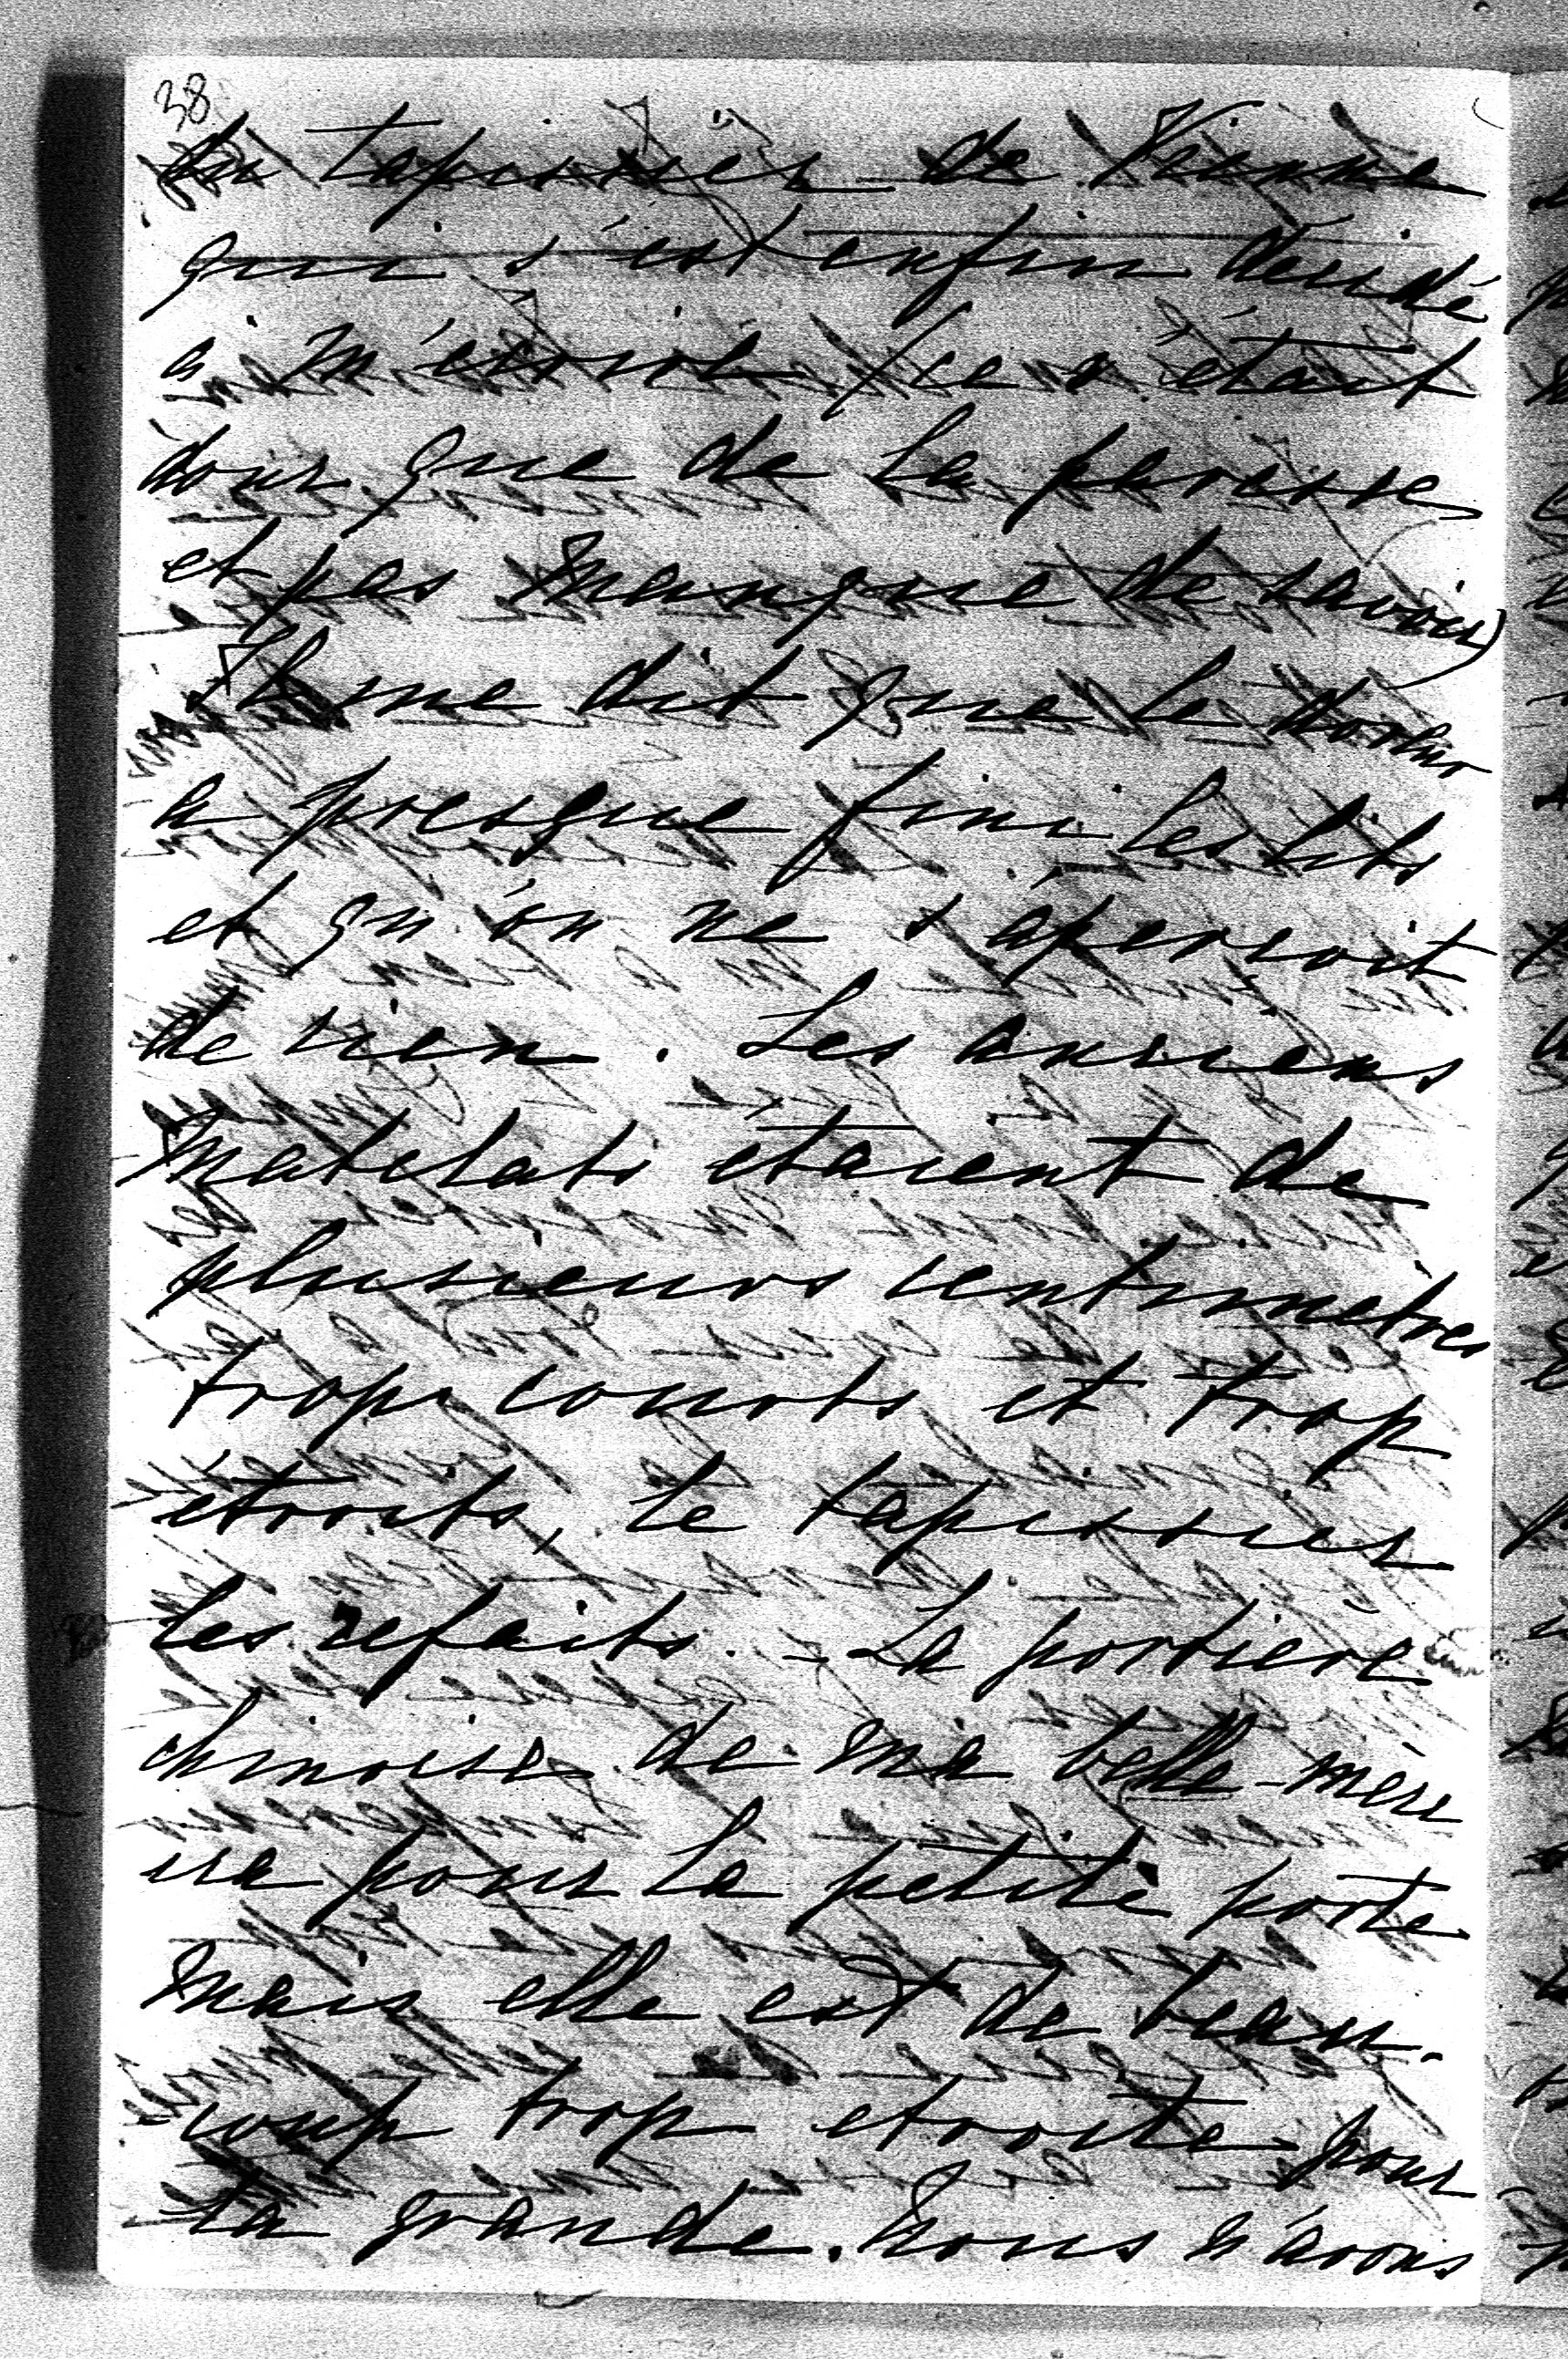 38
du tapissier de Vienne
qui s'est enfin décidé
à m'écrire (ce n'était
donc que de la paresse
et pas manque de savoir)
Il me dit que le doreur
a presque fini les lits
et qu'on ne s'aperçoit
de rien. Les anciens
matelats étaient de
plusieurs centimetres
trops courts et trop
étroits, le tapissier
les refaits. – La portière
chinoise de ma belle-mère
ira pour la petite porte
mais elle est de beau-
coup trop etroite pour
la grande. Nous n'avons